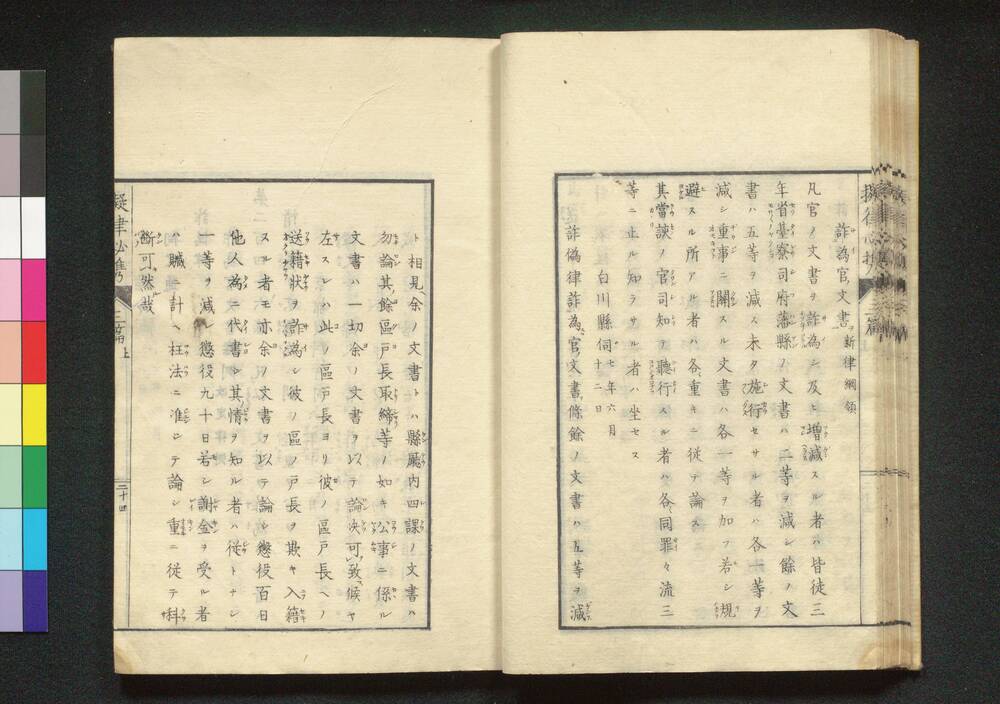 詐為官文書 新律綱領
凡官ノ文書ヲ詐為シ及ヒ增減スル者ハ皆徒三
年省臺寮司府藩縣ノ文書ハ二等ヲ減シ餘ノ文
書ハ五等ヲ減ス未タ施行セサル者ハ各一等ヲ
減シ重事ニ關スル文書ハ各一等ヲ加フ若シ規
避スル所アル者ハ各重キニ從テ論ス
其當該ノ官司知テ聽行スル者ハ各同罪々流三
等ニ止ル知ラサル者ハ坐セス
白川縣伺 七年六月十二日
詐偽律詐為官文書條餘ノ文書ハ五等ヲ減
ト相見余ノ文書トハ縣廳内四課ノ文書ハ
勿論其餘區戸長取締等ノ如キ公事ニ係ル
文書ハ一切余ノ文書ヲ以テ論決可致候ヤ
左スレハ此ノ區戸長ヨリ彼ノ區戸長ヘノ
送籍狀ヲ詐為シ彼ノ區ノ戸長ヲ欺キ入籍
スル者モ亦余ノ文書ヲ以テ論シ懲役百日
他人為ニ代書シ其情ヲ知ル者ハ從トナシ
一等ヲ減シ懲役九十日若シ謝金ヲ受ル者
ハ贓ニ計ヘ枉法ニ准シテ論シ重ニ從テ科
斷可然哉
擬律必携 三篇 上 二十四